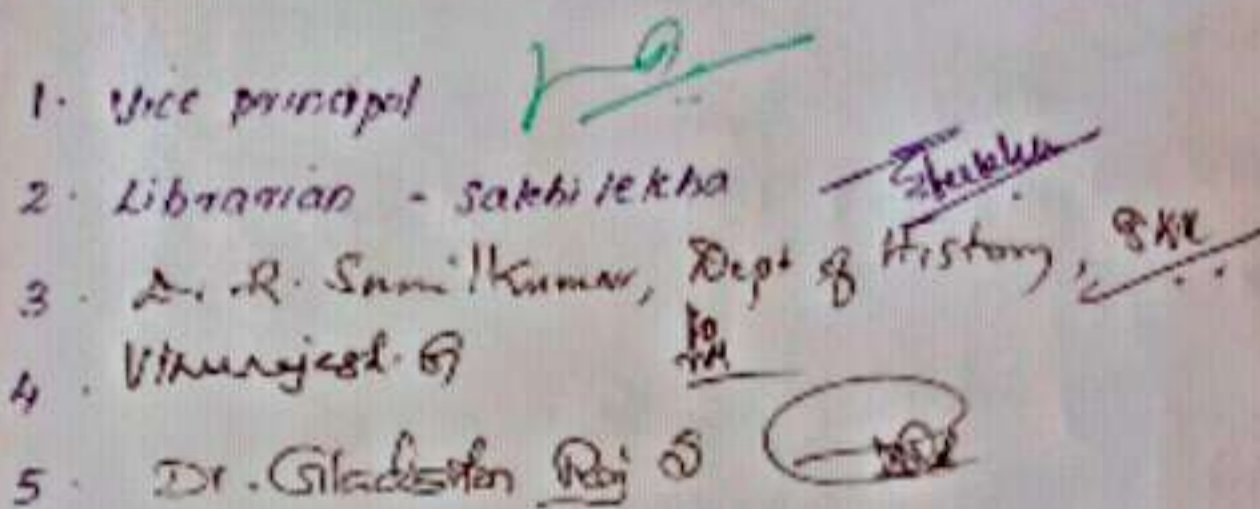 1. Vice principal
2. Librarian - Sakhi lekha
3. Dr. R. Sunil Kumar, Dept of History,
4.
5. Dr. Gladston Raj S